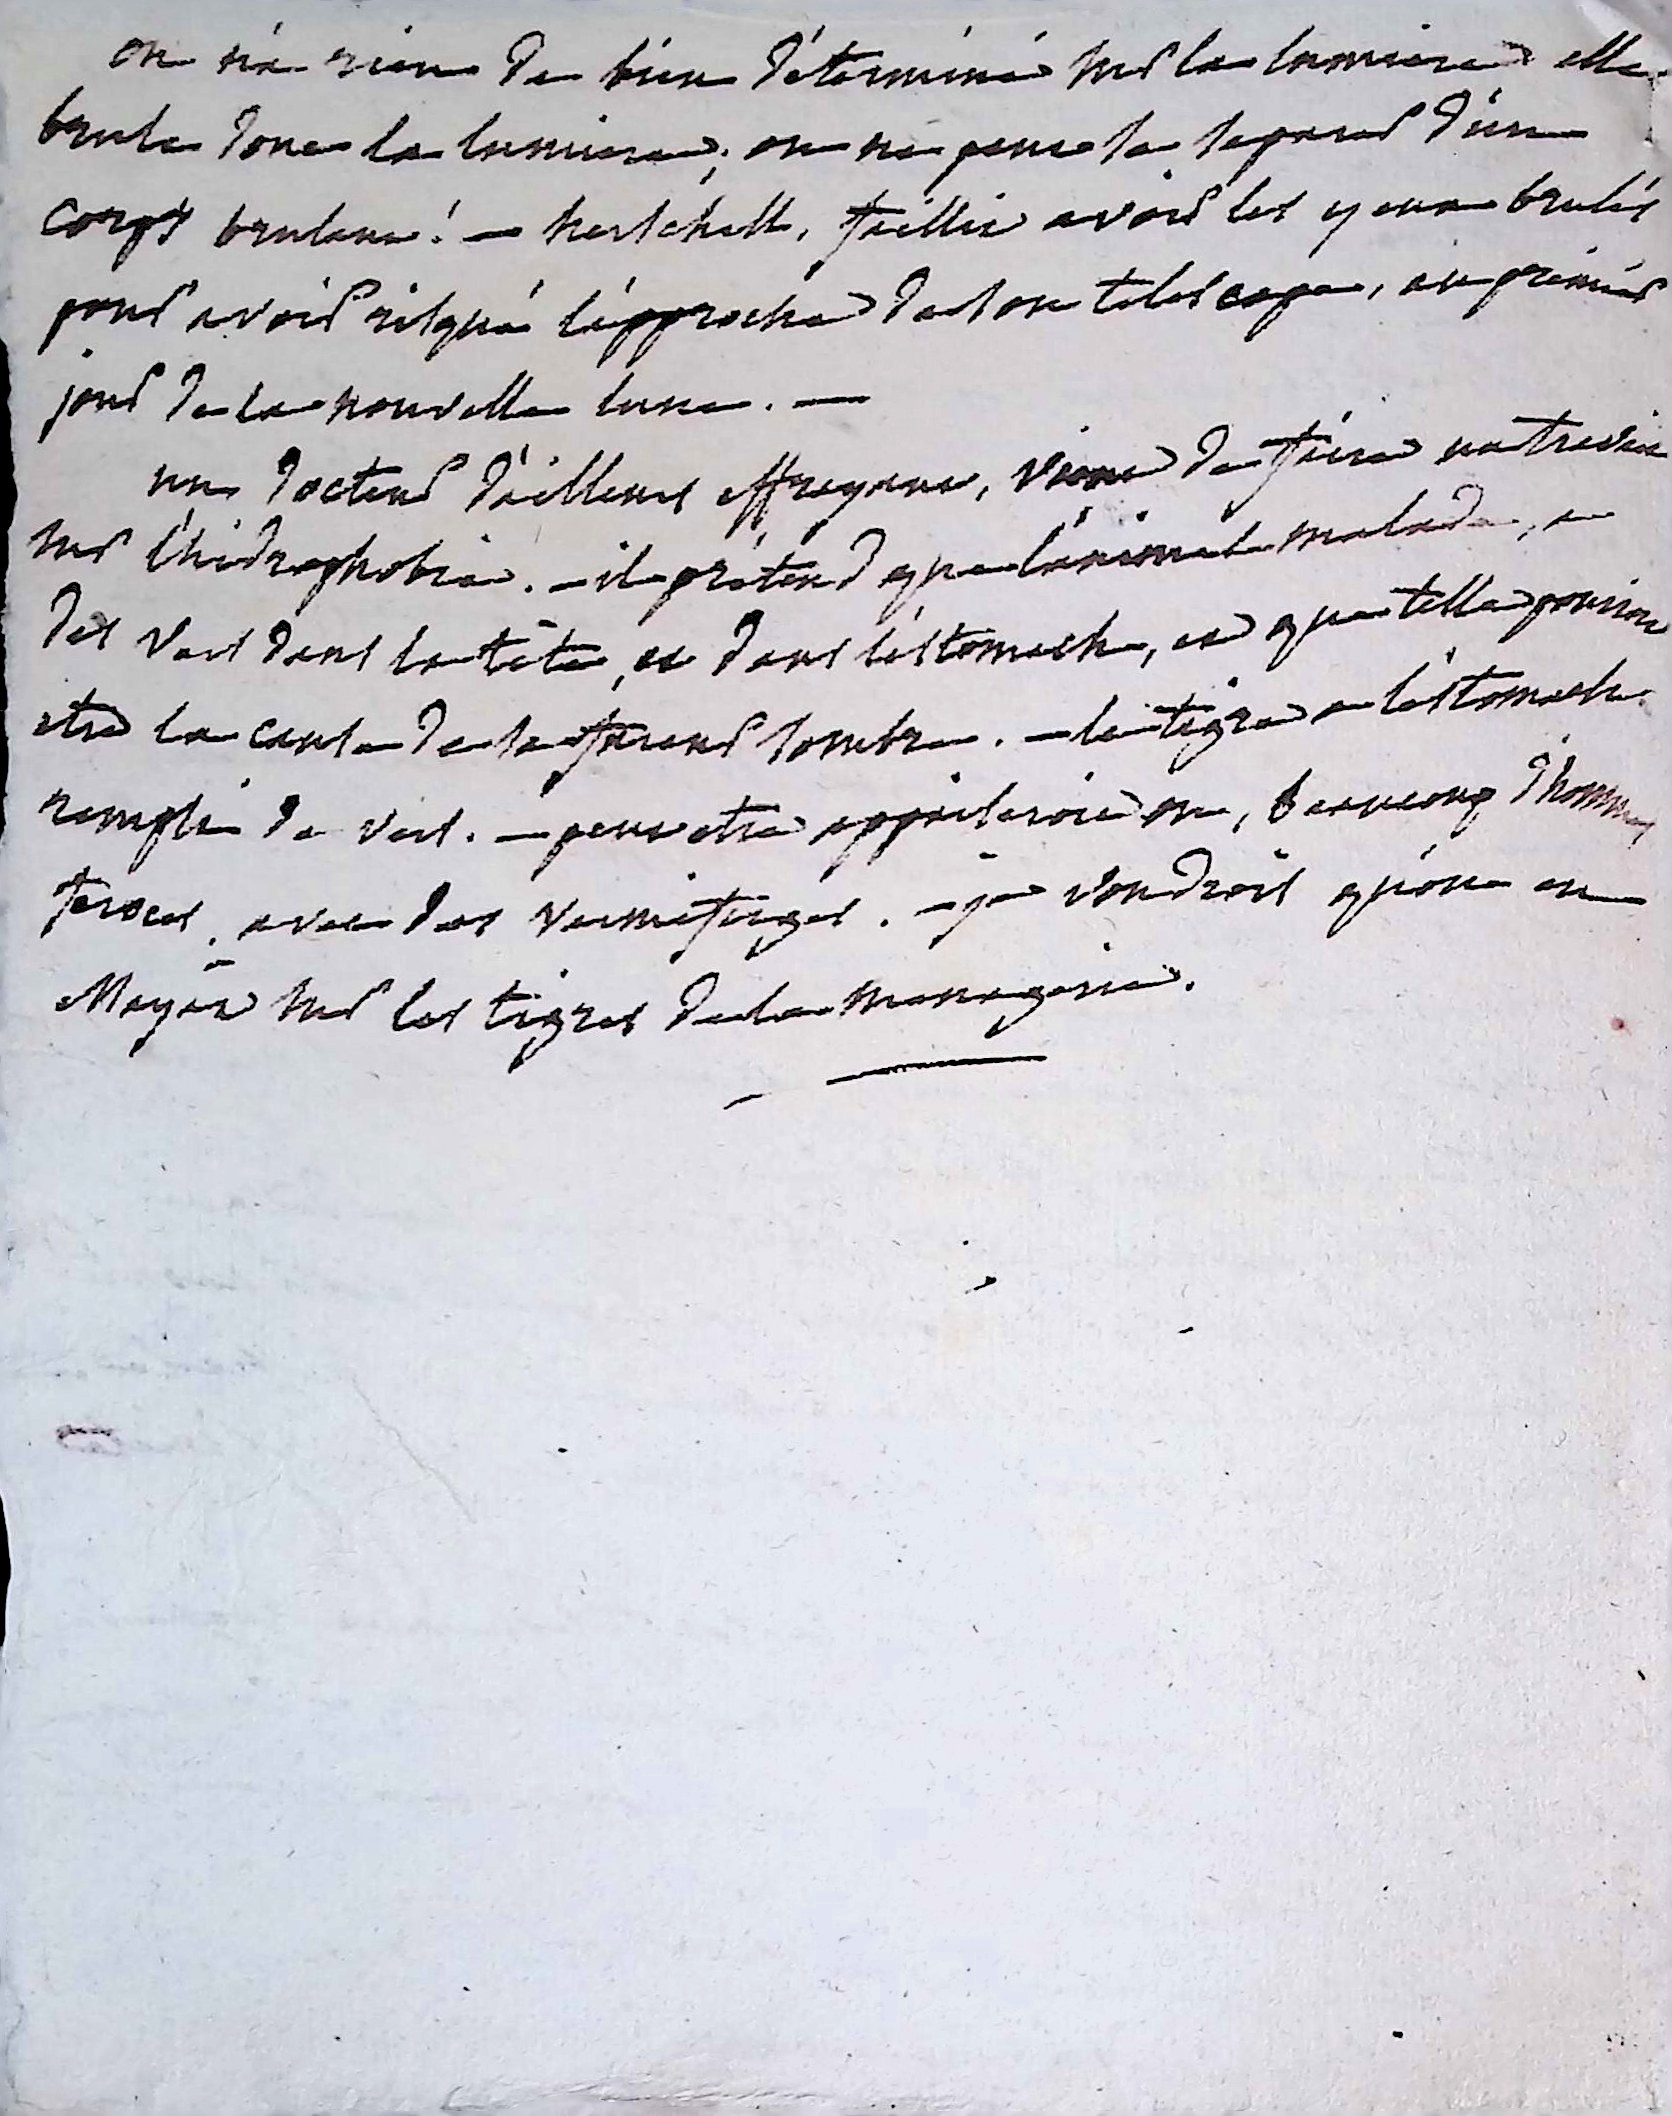 on n'a rien de bien déterminé sur la lumiere elle
brule donc la lumiere, on ne peut la separer d'un
corps brulant! — herschell, faillit avoir les yeux brulés
pour avoir risqué l'approche de son telescope, au premier
jour de la nouvelle lune. —
un docteur d'ailleurs effrayant, vient de faire un traité
sur l'hidrophobie. — il prétend que l'animal malade, a
des vers dans la tête, et dans l'éstomach, et que telle pouroit
etre la cause de sa fureur sombre. — le tigre a l'éstomach
rempli de vers. — peut etre appaiseroit on, beaucoup d'hommes
feroces, avec des vermifuges. — je voudrois qu'on en
essayât sur les tigres de la menagerie.